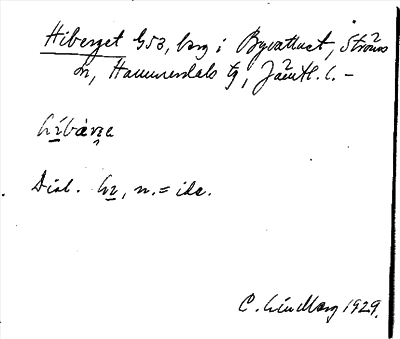 Hiberget G53, berg i Byvattnet, Ströms
sn, Hammerdals tg, Jämtl. l. –
hı̵̀bàrje
Dial. hı, n. = ide.
C. Lindberg 1929.